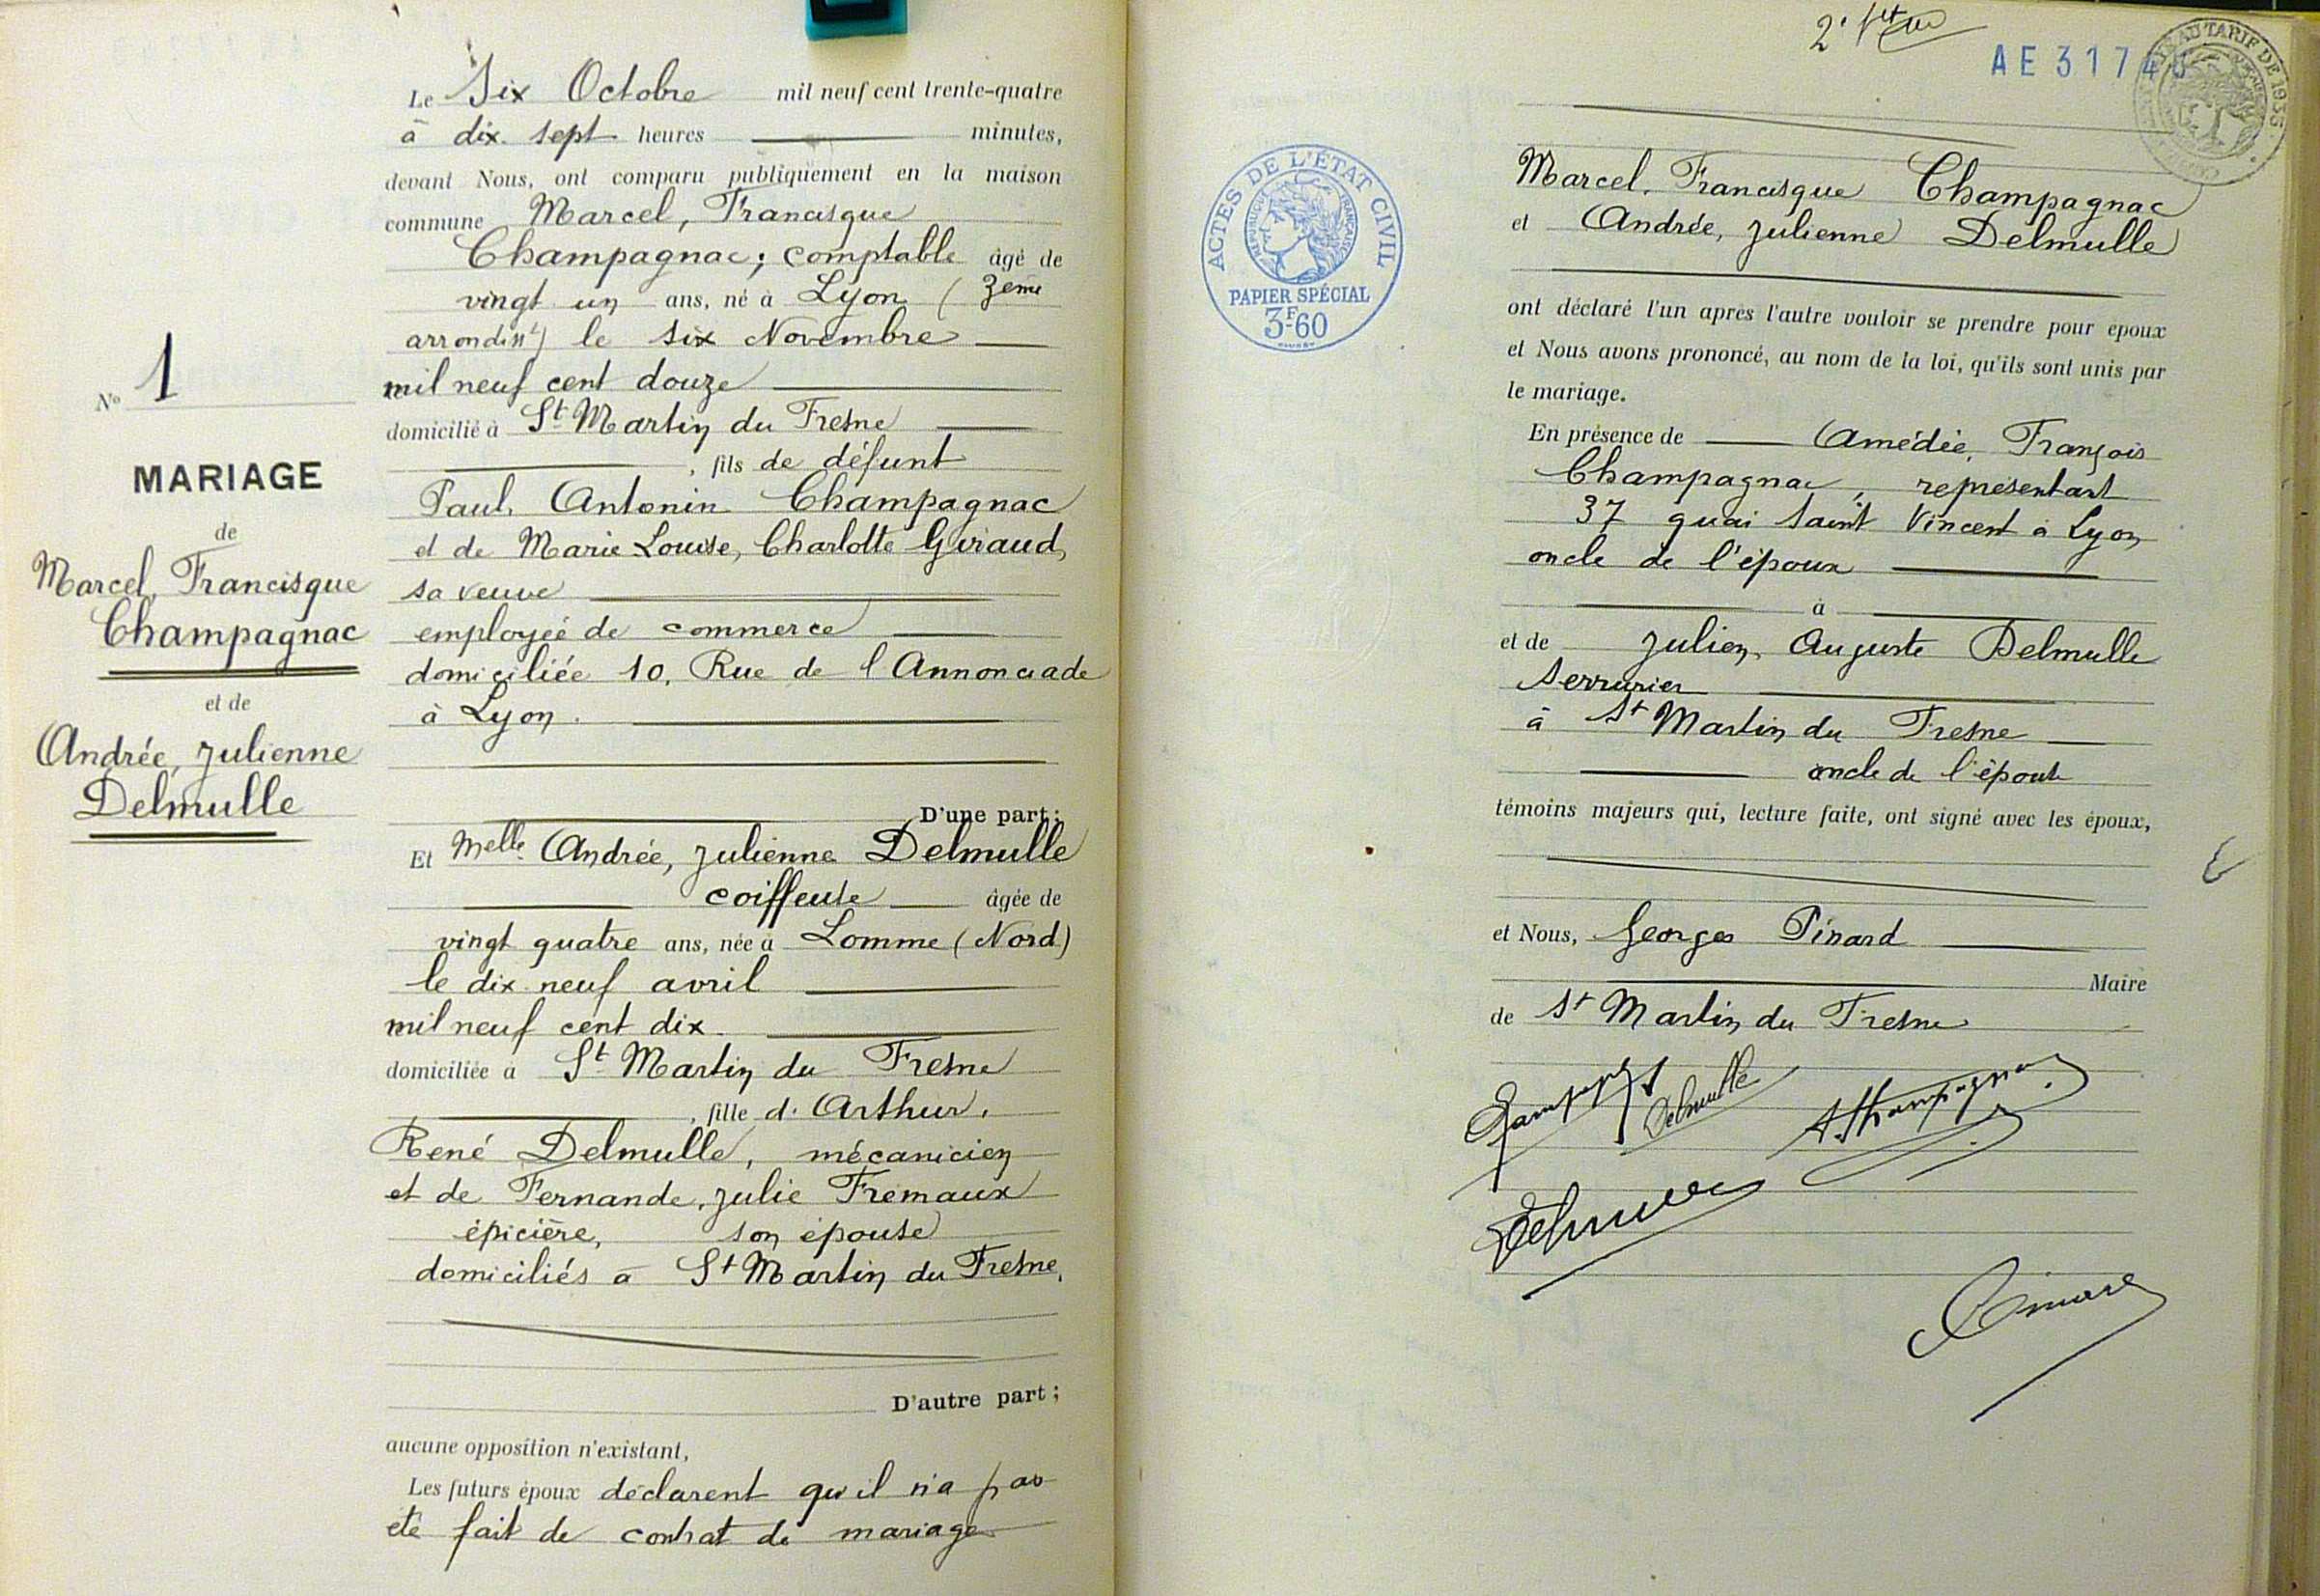 Le Six Octobre mil neuf cent trente-quatre
à dix sept heures minutes,
devant Nous, ont comparu publiquement en la maison
commune Marcel, Francisque
Champagnac, comptable âgé de
vingt un ans, né à Lyon (3eme
arrondisst) le six Novembre
mil neuf cent douze
domicilié à St Martin du Fresne
, fils de défunt
Paul, Antonin Champagnac
et de Marie Louise, Charlotte Giraud,
sa veuve
employée de commerce
domiciliée 10, Rue de l'Annonciade
à Lyon.
D'une part;
Et Melle Andrée, Julienne Delmulle
coiffeuse âgée de
vingt quatre ans, née à Lomme (Nord)
le dix neuf avril
mil neuf cent dix
domiciliée à St Martin du Fresne
, fille d'Arthur,
René Delmulle, mécanicien
et de Fernande, Julie Fremaux
épicière, son épouse
domiciliés à St Martin du Fresne,
D'autre part;
aucune opposition n'existant,
Les futurs époux déclarent qu'il n'a pas
été fait de contrat de mariage
No 1
MARIAGE
de
Marcel, Francisque
Champagnac
et de
Andrée, Julienne
Delmulle
AE 3174
AU TARIF DE 1935
ACTES DE L'ÉTAT CIVIL
RÉPUBLIQUE FRANÇAISE
PAPIER SPÉCIAL
3F60
Marcel, Francisque Champagnac
et Andrée, Julienne Delmulle
ont déclaré l'un après l'autre vouloir se prendre pour époux
et Nous avons prononcé, au nom de la loi, qu'ils sont unis par
le mariage.
En présence de Amédée, François
Champagnac, représentant
37 quai Saint Vincent à Lyon
oncle de l'époux
à
et de Julien, Auguste Delmulle
Serrurier
à St Martin du Fresne
oncle de l'épouse
témoins majeurs qui, lecture faite, ont signé avec les époux,
et Nous, Georges Pinard
Maire
de St Martin du Fresne
Delmulle
A. Champagnac
Delmulle
Pinard